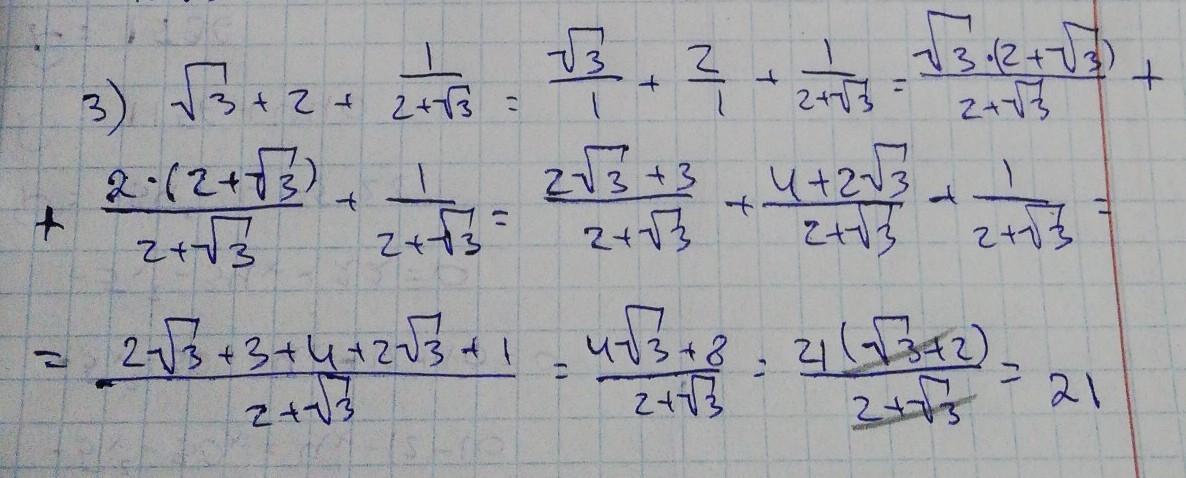 3) √3 + 2 + 1/(2+√3) = √3/1 + 2/1 + 1/(2+√3) = √3·(2+√3)/(2+√3) +
+ 2·(2+√3)/(2+√3) + 1/(2+√3) = (2√3+3)/(2+√3) + (4+2√3)/(2+√3) + 1/(2+√3) =
= (2√3+3+4+2√3+1)/(2+√3) = (4√3+8)/(2+√3) = 21(√3+2)/(2+√3) = 21